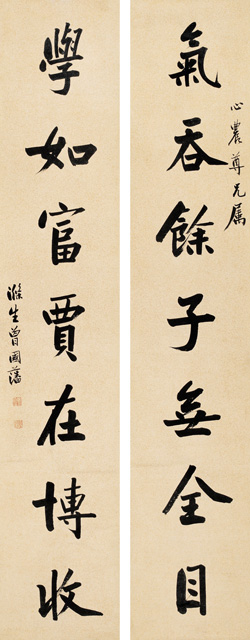 氣吞餘子無全目
心農尊兄屬
學如富賈在博收
滌生曾國藩